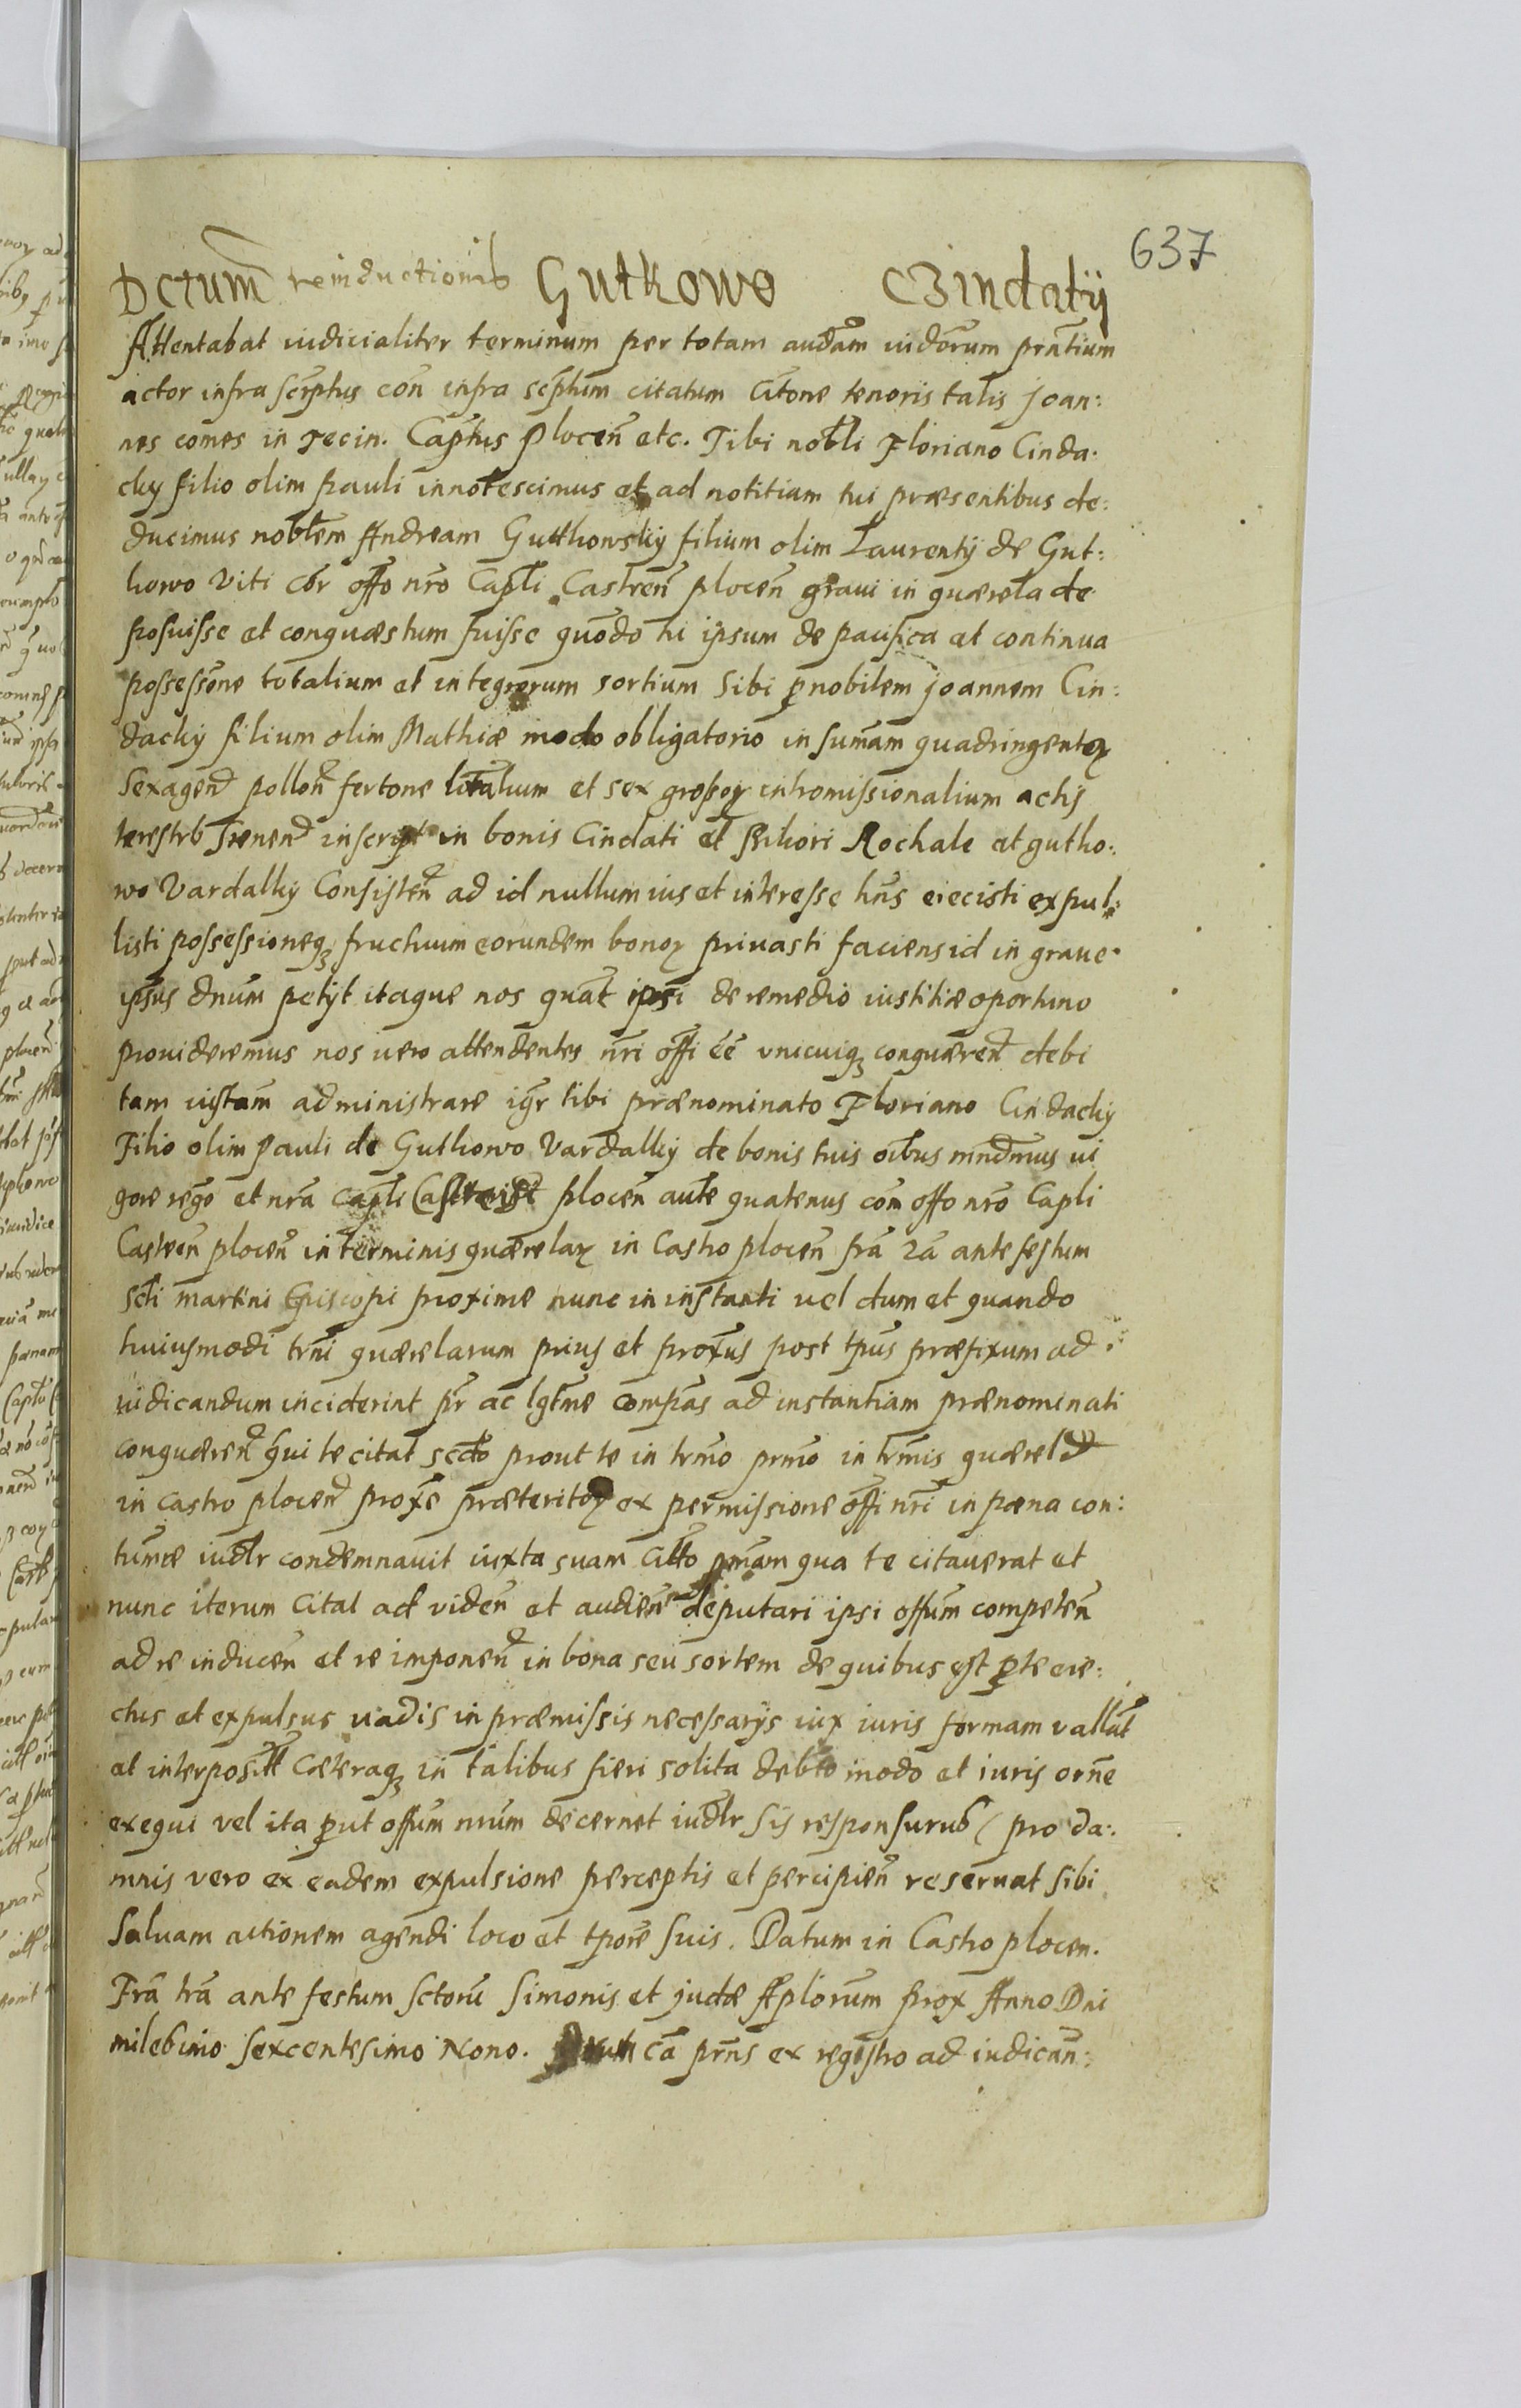 637
Dctum reinductionis Gutkowo Czindatÿ
Attentabat iudicialiter terminum per totam audam iudorum prntium
actor infra scrptus con infra scptum citatum Citone tenoris talis Joan:
nes comes in Tecin. Captus Plocen etc. Tibi nobli Floriano Cinda.
cky filio olim Pauli innotescimus et ad notitiam tui præsentibus de:
ducimus noblem Andream Gutkowsky filium olim Laurentÿ de Gut:
kowo Viti cor offo nro Capli Castren plocen graui in quærela de
posuisse et conquæstum fuisse quodo tu ipsum de pacifica et continua
possessione totalium et integrorum sortium sibi p nobilem Joannem Cin:
dacky filium olim Mathiæ modo obligatorio in sumam quadringentor
sexagen pollon fertone litalium et sex grossor intromissionalium actis
terestrb inscript in bonis Cindati et Rochale et gutko:
wo Vardalky Consisten ad id nullum ius et interesse hns eiecisti expul:
listi possessioneq fructuum eorundem bonor priuasti faciens id in graue
ipsius dnum petyt itaque nos quat ipsi de remedio iustitiæ oportuno
prouideremus nos uero attendentes nri offi ee vnicuiq conquæren debi
tam iustam administrare igr tibi prænominato Floriano Cindacky
Filio olim Pauli de Gutkowo Vardalky de bonis tuis oibus mndmus ui
gore regio et nra Capli plocen aute quatenus com offo nro Capli
Castren plocen in terminis quærelar in Castro plocen fra 2a ante festum
Scti martini Episcopi proxime nunc in instanti uel dum et quando
huiusmodi trni quærelarum prius et proxus post tpus præfixum ad
iudicandum inciderint pr ac lgtme compas ad instantiam prænominati
conquæren qui te citat scdo prout te in trmo prmo in trmis quærel
in Castro plocen proxe præteritor ex permissione offi nri in pæna con:
tumæ iudlr condemnauit iuxta suam Citto prmam qua te citauerat et
nunc iterum Citat ad viden et audien deputari ipsi offum competen
ad re inducen et re imponen in bona seu sortem de quibus est p te eie:
ctus et expulsus uadis in præmissis necessarÿs iux iuris formam vallat
et interposit Cæteraq in talibus fieri solita debto modo et iuris orne
exequi vel ita put offum nrum decernet iudlr sis responsurus pro da:
mnis vero ex eadem expulsione perceptis et percipien reseruat sibi
saluam actionem agendi loco et tpore suis. Datum in Castro plocen.
Fra tra ante festum Sctoru Simonis et Judæ Aplorum prox Anno Dni
milebimo sexcentesimo Nono. ca prns ex regestro ad iudican: